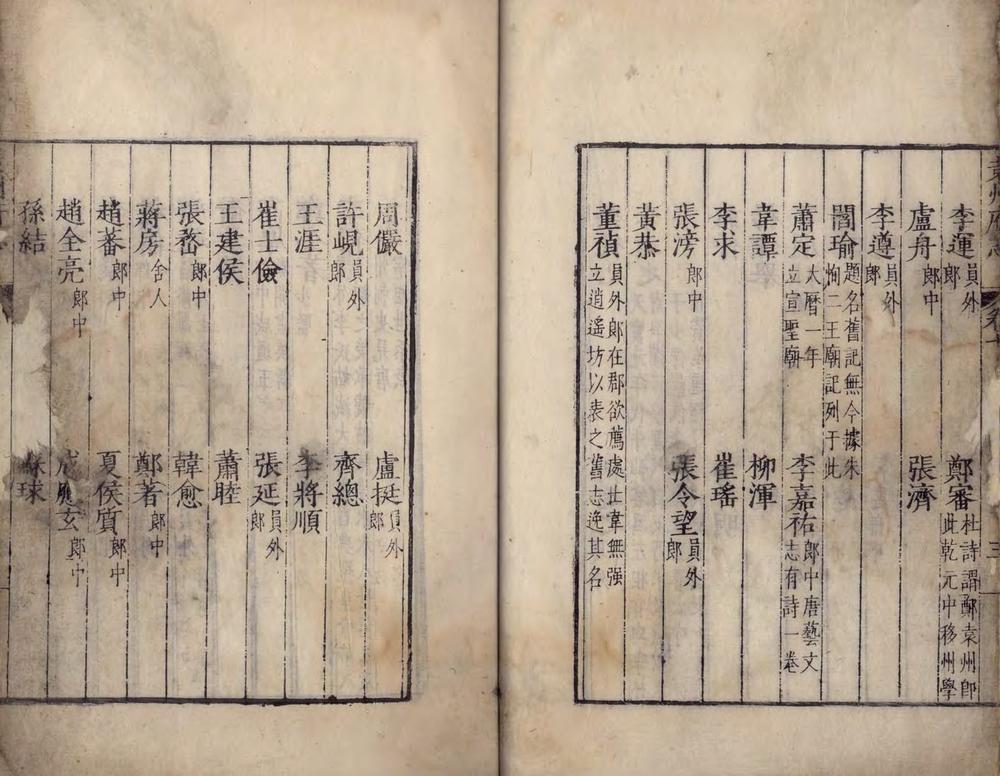 李運員外郎　鄭審杜詩謂鄭袁州即此乾元中移州學
盧舟郎中　張濟
李遵員外郎
閻瑜題名舊記無今據朱恂二王廟記列于此
蕭定大曆一年立宣聖廟　李嘉祐郎中唐藝文志有詩一卷
韋譚　柳渾
李求　崔瑤
張滂郎中　張令望員外郎
黃恭
董禎員外郎在郡欲薦處士韋無强立逍遙坊以表之舊志逸其名
周儼　盧挺員外郎
許峴員外郎　齊總
王涯　李將順
崔士儉　張延員外郎
王建侯　蕭睦
張嵍郎中　韓愈
蔣房舍人　鄭著郎中
趙蕃郎中　夏侯質郎中
趙全亮郎中　成玄郎中
孫結　球